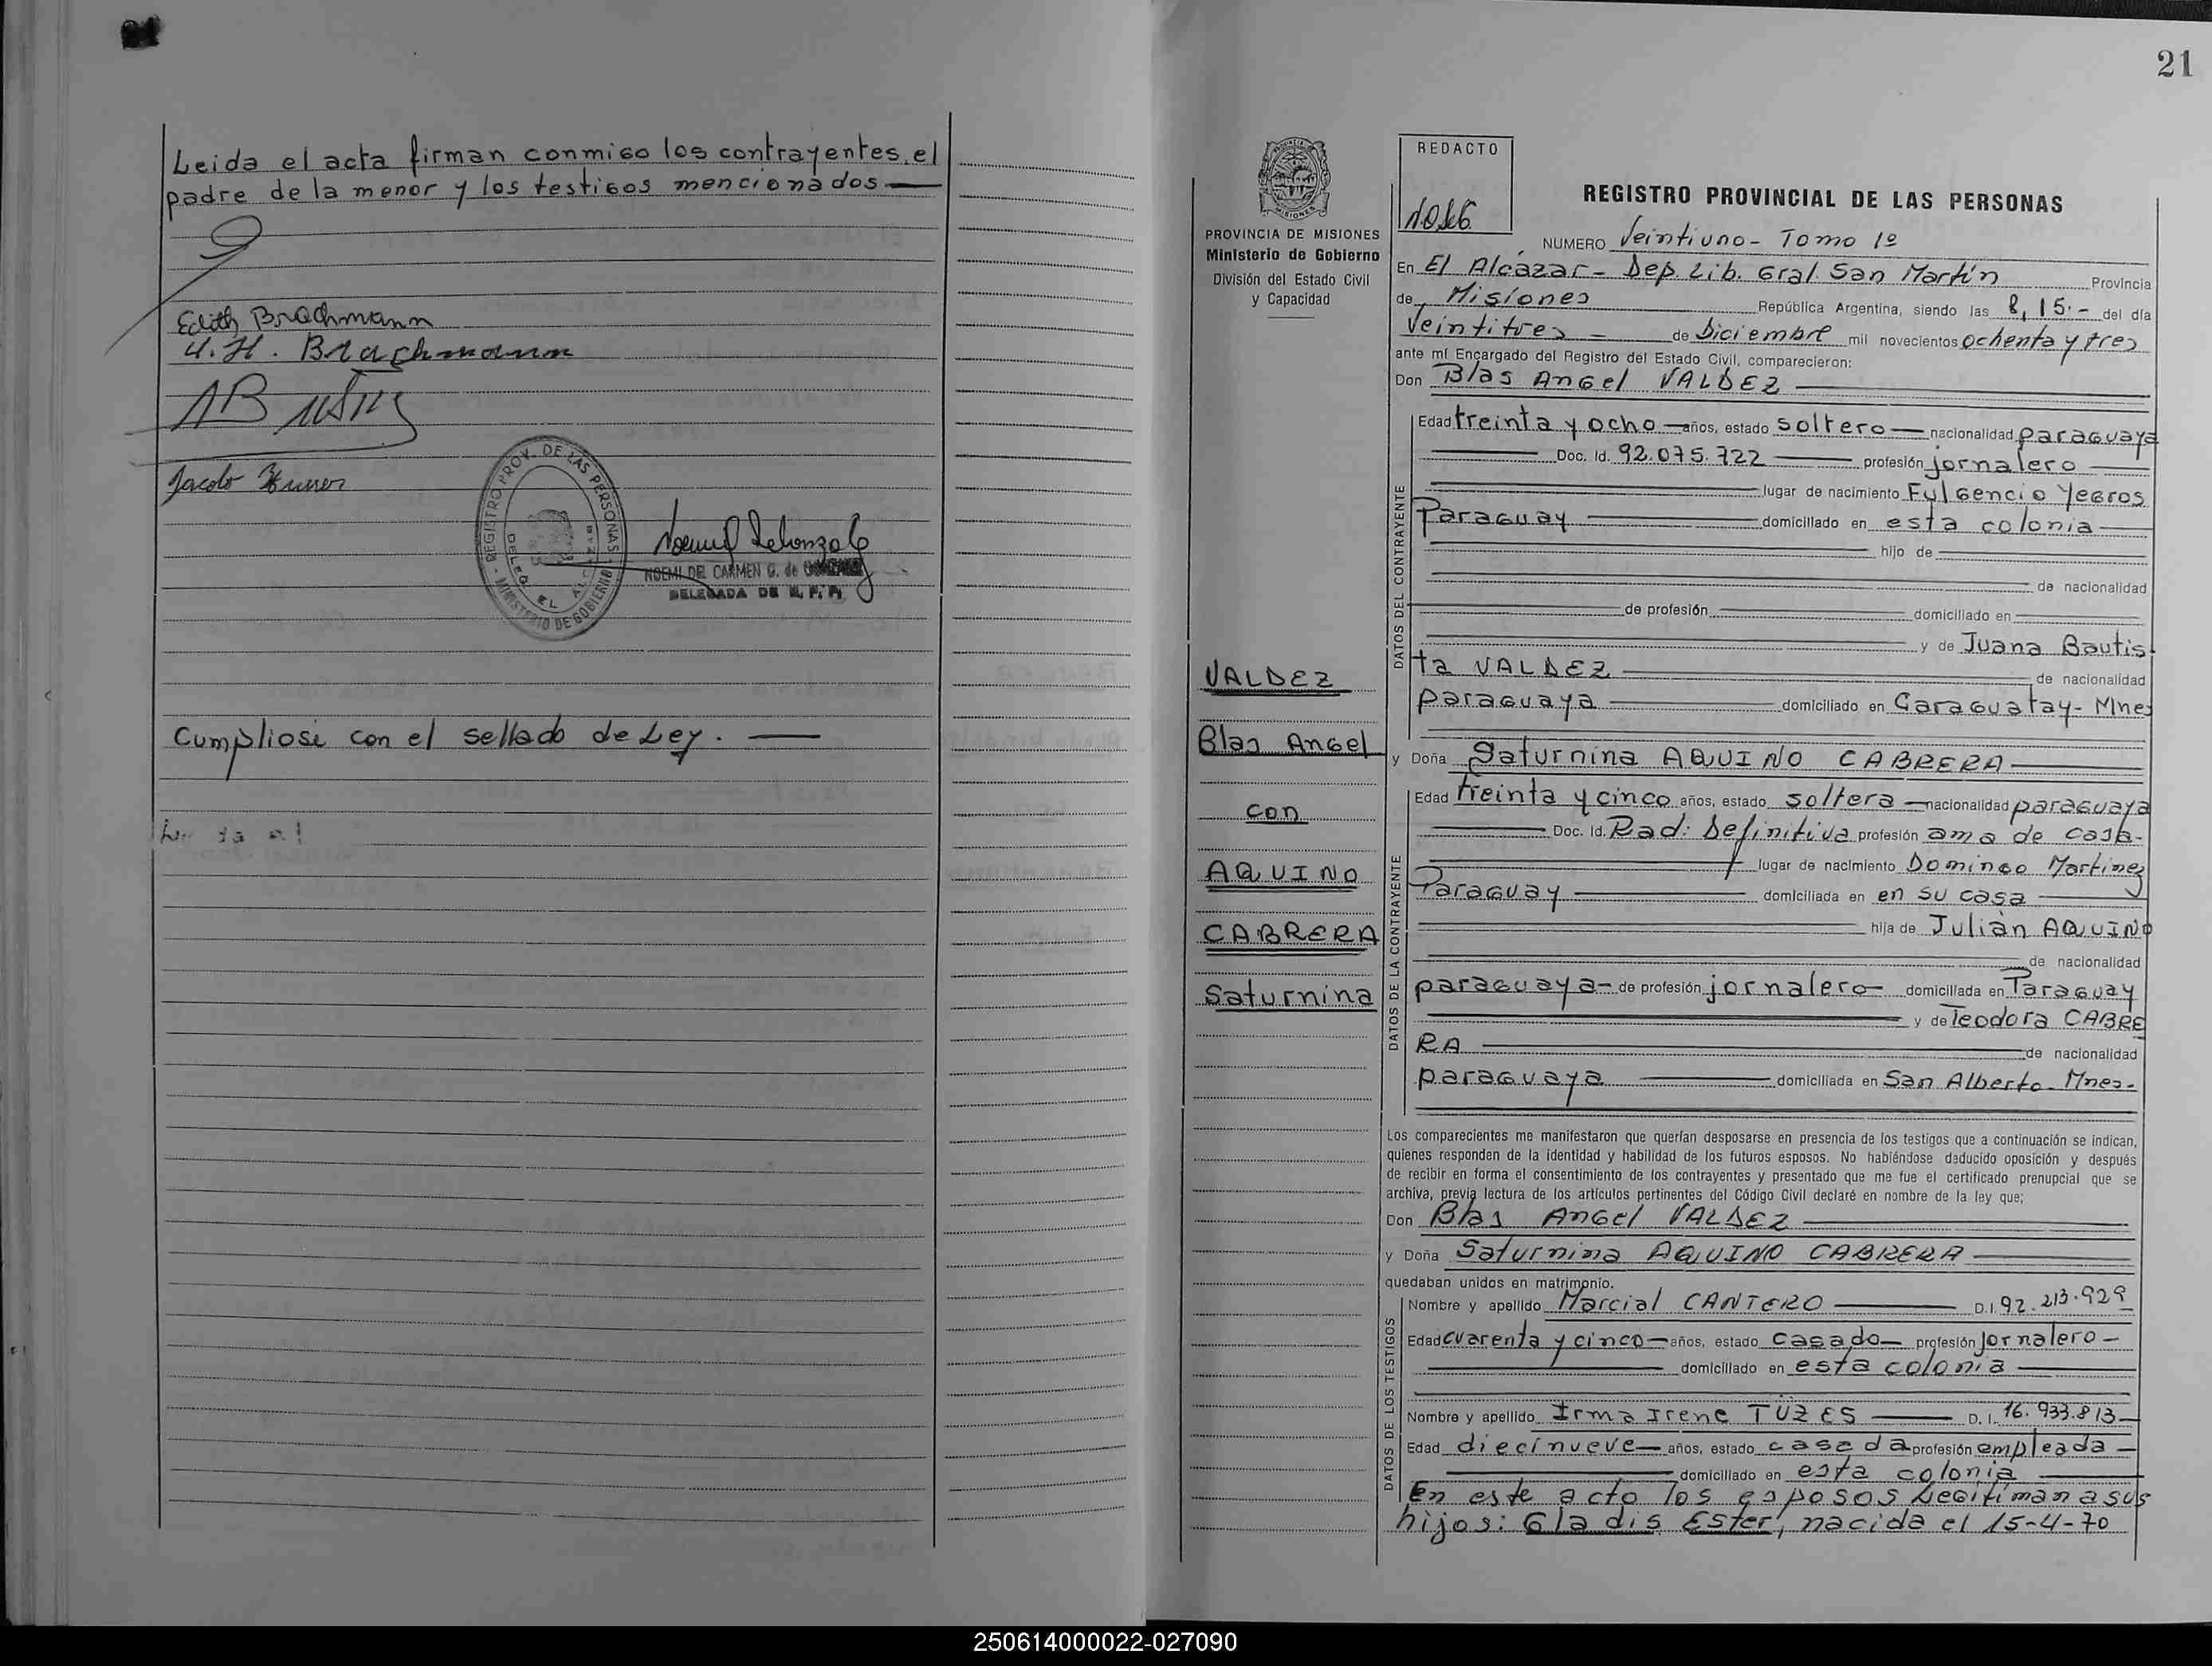 Leida el acta firman conmigo los contrayentes, el
padre de la menor y los testigos mencionados
Edith Brachmann
Jacobo
REGISTRO PROV. DE LAS PERSONAS
MINISTERIO DE GOBIERNO
NOEMI DEL CARMEN G. de
DELEGADA DE R. P. P.
Cumpliose con el sellado de Ley.
21
PROVINCIA DE MISIONES
Ministerio de Gobierno
División del Estado Civil
y Capacidad
REDACTO
REGISTRO PROVINCIAL DE LAS PERSONAS
NUMERO Veintiuno- Tomo 1º
En El Alcázar- Dep. Lib. Gral. San Martín Provincia
de Misiones República Argentina, siendo las 8,15.- del día
Veintitres de Diciembre mil novecientos ochenta y tres
ante mí Encargado del Registro del Estado Civil, comparecieron:
Don Blas Angel VALDEZ
DATOS DEL CONTRAYENTE
Edad treinta y ocho años, estado soltero nacionalidad paraguaya
Doc. Id. 92.075.722 profesión jornalero
lugar de nacimiento Fulgencio Yegros
Paraguay domiciliado en esta colonia
hijo de
de nacionalidad
de profesión domiciliado en
y de Juana Bautis
ta VALDEZ de nacionalidad
paraguaya domiciliado en Caraguatay- Mnes
y Doña Saturnina AQUINO CABRERA
DATOS DE LA CONTRAYENTE
Edad treinta y cinco años, estado soltera nacionalidad paraguaya
Doc. Id. Rad: Definitiva profesión ama de casa-
lugar de nacimiento Domingo Martinez
Paraguay domiciliada en en su casa
hija de Julián AQUINO
de nacionalidad
paraguaya- de profesión jornalero domiciliada en Paraguay
y de Teodora CABRE
RA de nacionalidad
paraguaya domiciliada en San Alberto- Mnes-
VALDEZ
Blas Angel
con
AQUINO
CABRERA
Saturnina
Los comparecientes me manifestaron que querían desposarse en presencia de los testigos que a continuación se indican,
quienes responden de la identidad y habilidad de los futuros esposos. No habiéndose deducido oposición y después
de recibir en forma el consentimiento de los contrayentes y presentado que me fue el certificado prenupcial que se
archiva, previa lectura de los artículos pertinentes del Código Civil declaré en nombre de la ley que;
Don Blas Angel VALDEZ
y Doña Saturnina AQUINO CABRERA
quedaban unidos en matrimonio.
DATOS DE LOS TESTIGOS
Nombre y apellido Marcial CANTERO D.I. 92.213.929
Edad cuarenta y cinco años, estado casado profesión jornalero-
domiciliado en esta colonia
Nombre y apellido Irma Irene TUZES D. I. 16.933.813
Edad diecinueve años, estado casada profesión empleada
domiciliado en esta colonia
En este acto los esposos Legitiman a sus
hijos: Gladis Ester, nacida el 15-4-70
250614000022-027090